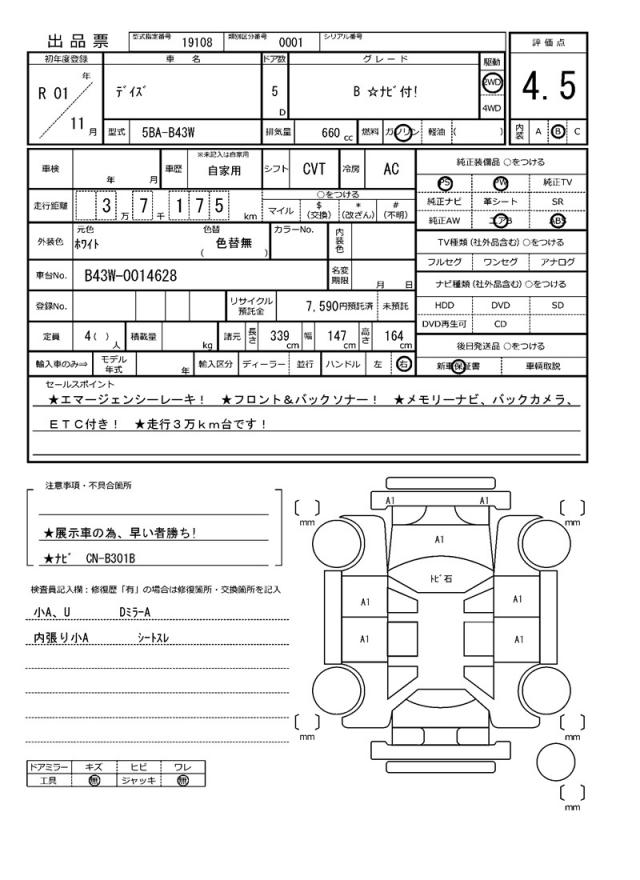 出品票 型式指定番号 19108 類別区分番号 0001 シリアル番号
評価点
4.5
内装 A B C
初年度登録 車名 ドア数 グレード 駆動
R 01 年 11 月 ﾃﾞｲｽﾞ 5 D B ☆ﾅﾋﾞ付! 2WD 4WD
型式 5BA-B43W 排気量 660 cc 燃料 ガソリン 軽油 ( )
車検 年 月 車歴 ※未記入は自家用 自家用 シフト CVT 冷房 AC
走行距離 3 万 7 千 1 7 5 km ○をつける
マイル $ (交換) * (改ざん) # (不明)
外装色 元色 ﾎﾜｲﾄ 色替 ( 色替無 ) カラーNo. 内装色
車台No. B43W-0014628 名変期限 月 日
登録No. リサイクル預託金 7,590円預託済 未預託
定員 4( ) 人 積載量 kg 諸元 長さ 339 cm 幅 147 cm 高さ 164 cm
輸入車のみ⇒ モデル年式 年 輸入区分 ディーラー 並行 ハンドル 左 右
純正装備品 ○をつける
PS PW 純正TV
純正ナビ 革シート SR
純正AW エアB ABS
TV種類(社外品含む)○をつける
フルセグ ワンセグ アナログ
ナビ種類(社外品含む)○をつける
HDD DVD SD
DVD再生可 CD
後日発送品 ○をつける
新車保証書 車輌取説
セールスポイント
★エマージェンシーレーキ! ★フロント&バックソナー! ★メモリーナビ、バックカメラ、
ETC付き! ★走行3万km台です!
注意事項・不具合箇所
★展示車の為、早い者勝ち!
★ﾅﾋﾞ CN-B301B
検査員記入欄:修復歴「有」の場合は修復箇所・交換箇所を記入
小A、U DﾐﾗｰA
内張り小A ｼｰﾄｽﾚ
ドアミラー キズ ヒビ ワレ
工具 無 ジャッキ 無
A1 A1
[ ] mm [ ] mm
A1
ﾄﾋﾞ石
A1 A1
A1 A1
[ ] mm [ ] mm
[ ] mm